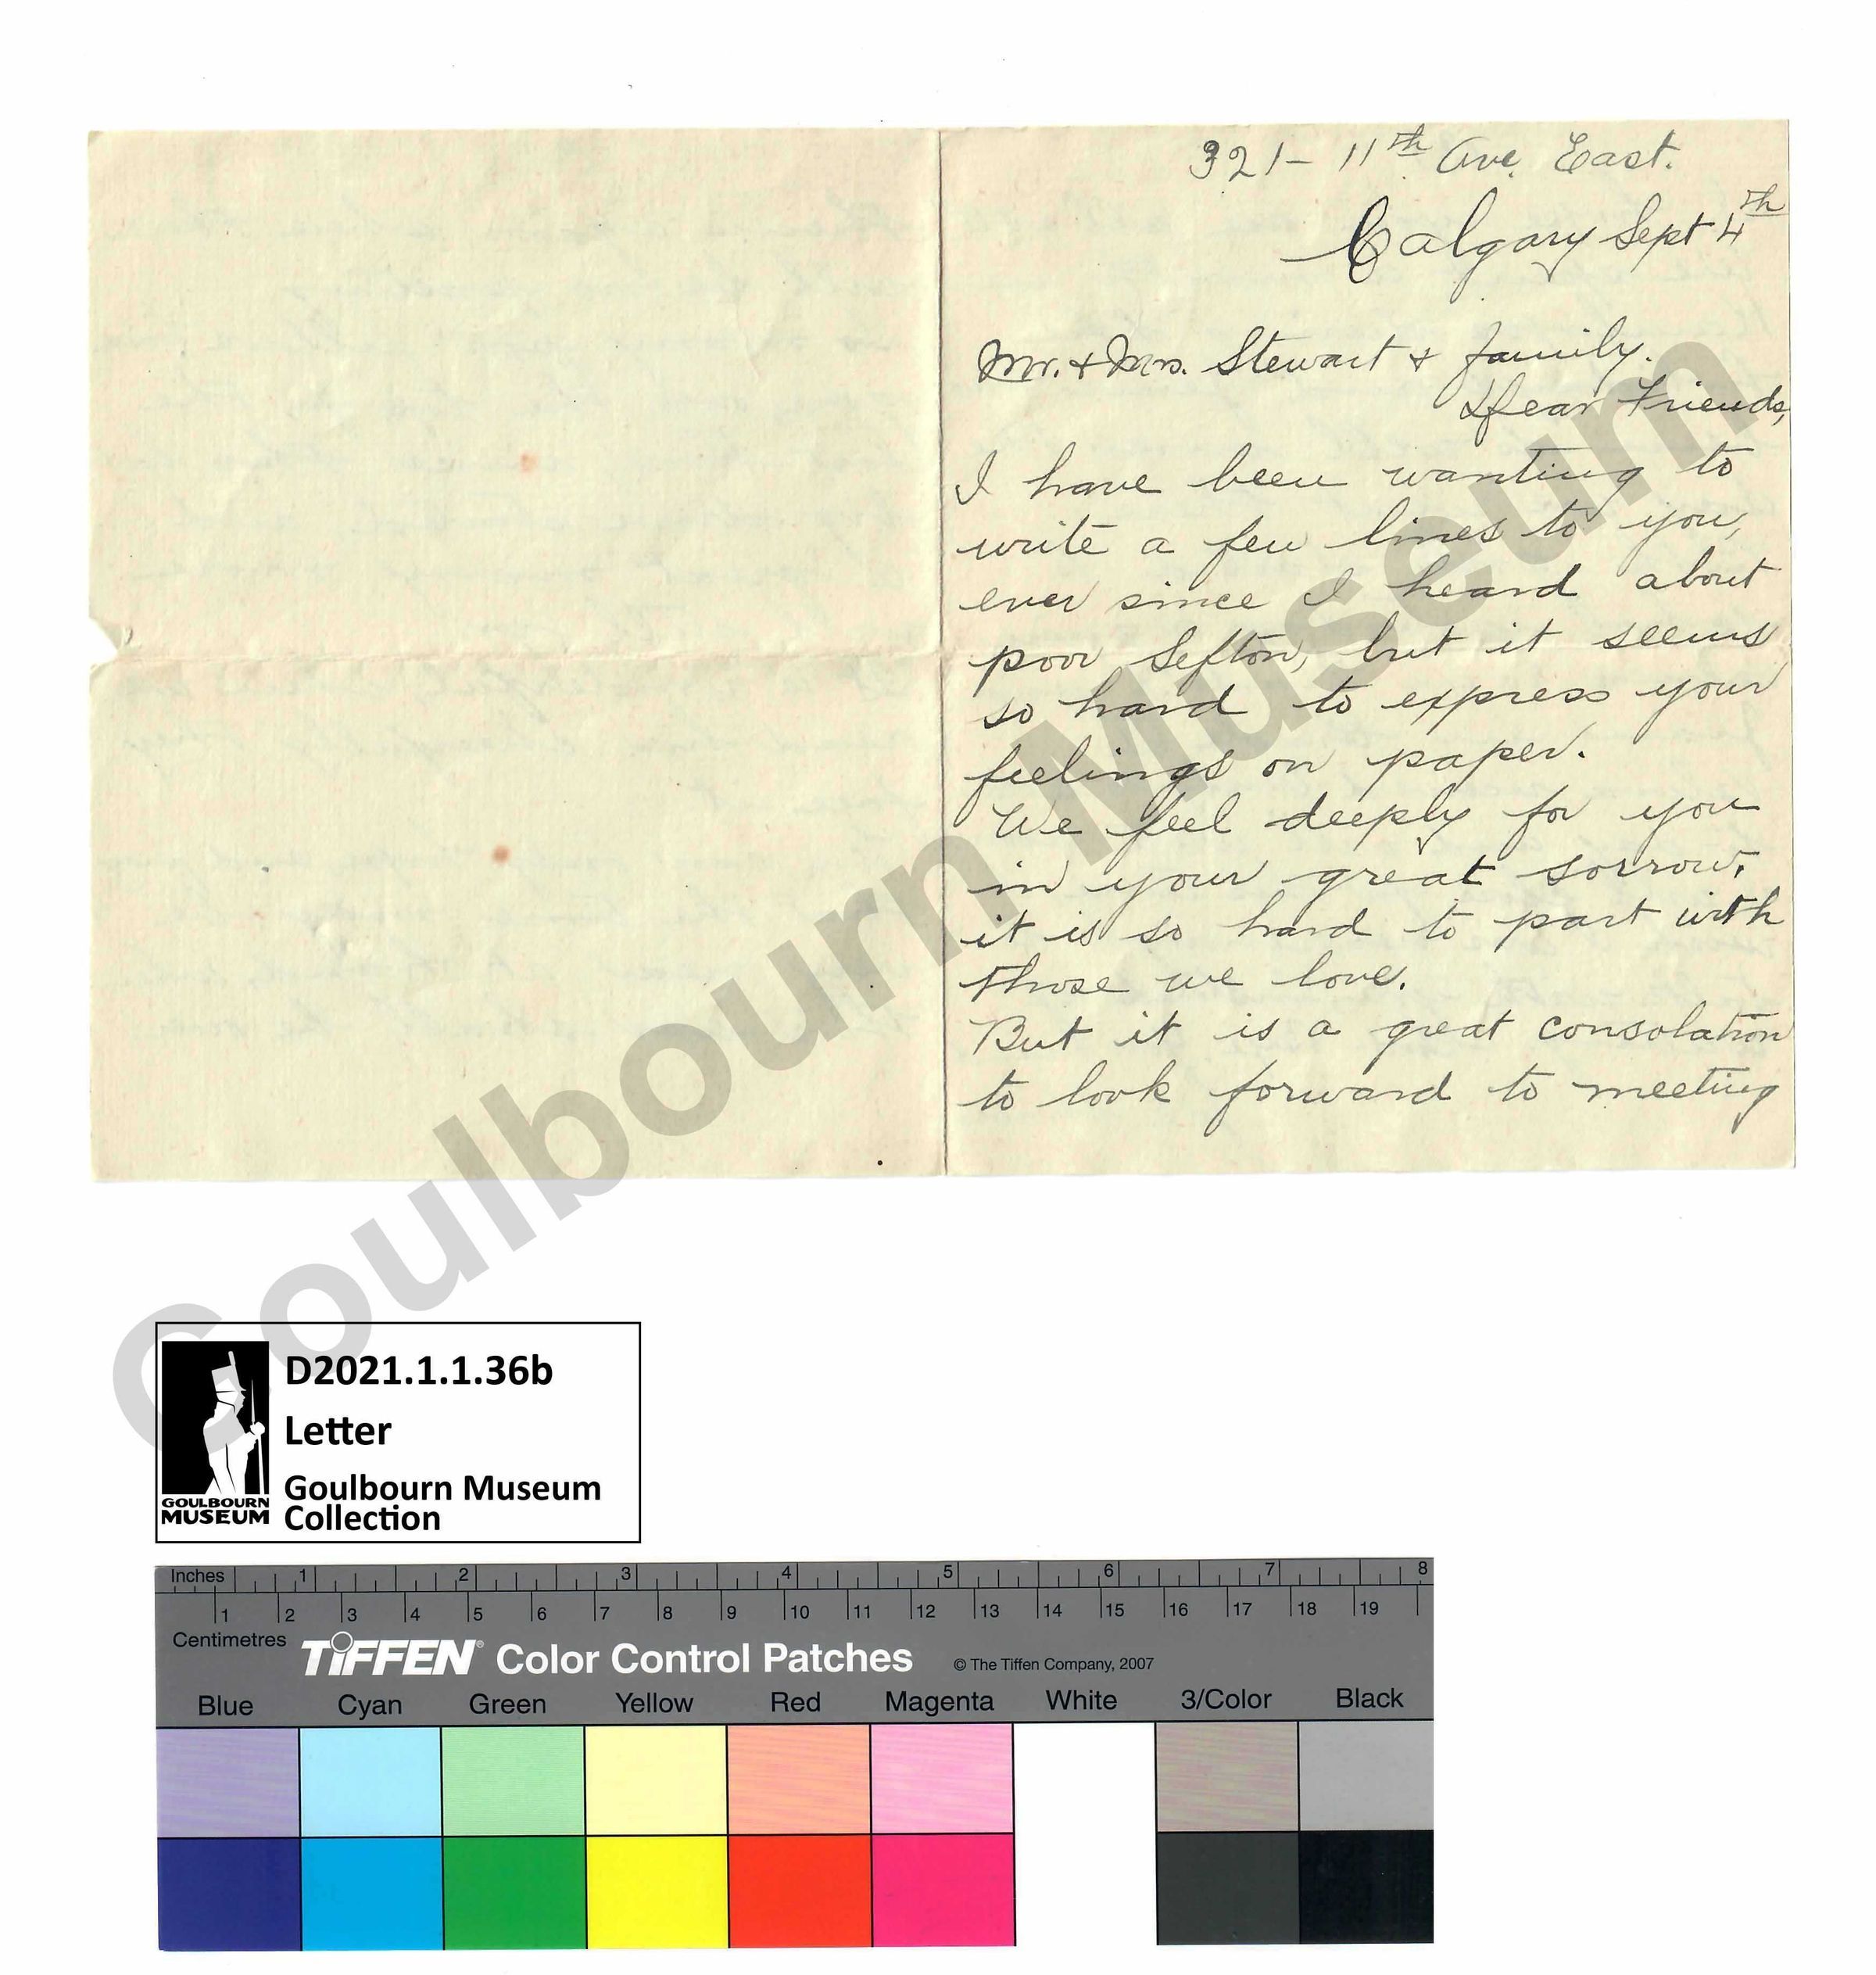 321 - 11th Ave. East.
Calgary Sept 4th
Mr. & Mrs. Stewart & family.
Dear Friends,
I have been wanting to
write a few lines to you,
ever since I heard about
poor Sefton, but it seems
so hard to express your
feelings on paper.
We feel deeply for you
in your great sorrow,
it is so hard to part with
those we love.
But it is a great consolation
to look forward to meeting
Goulbourn Museum
D2021.1.1.36b
Letter
Goulbourn Museum
Collection
GOULBOURN
MUSEUM
Inches 1 2 3 4 5 6 7 8
1 2 3 4 5 6 7 8 9 10 11 12 13 14 15 16 17 18 19
Centimetres
TIFFEN® Color Control Patches © The Tiffen Company, 2007
Blue Cyan Green Yellow Red Magenta White 3/Color Black